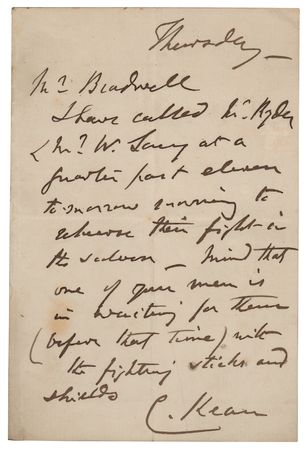 Thursday
Mr Bradwell
I have called Mr Ryder
& Mr W. Lacy at a
quarter past eleven
to-morrow morning to
rehearse their fight in
the saloon – Mind that
one of your men is
in waiting for them
(before that time) with
the fighting sticks and
shields
C. Kean